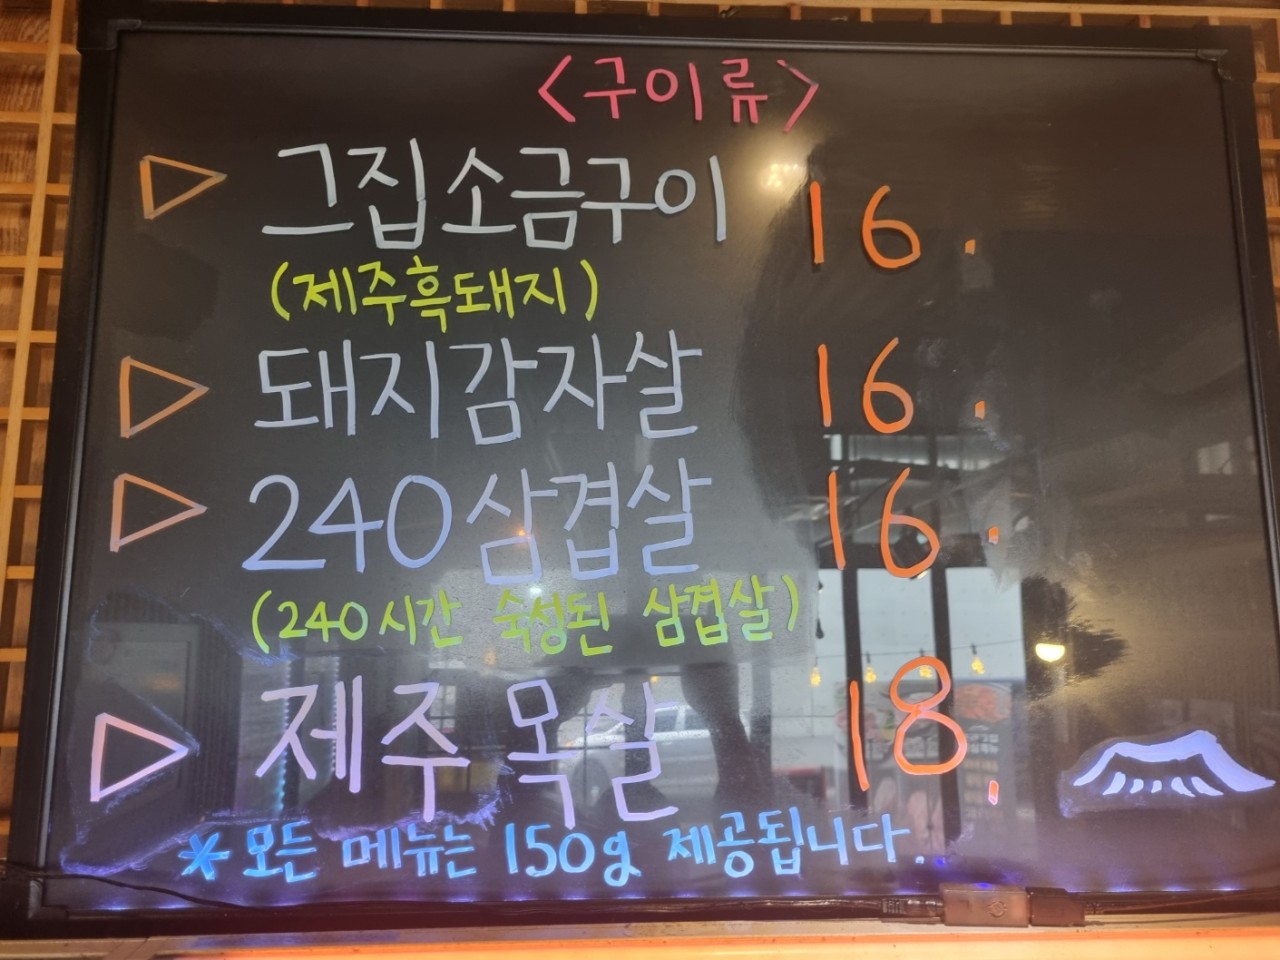 <구이류>
▷ 그집소금구이 16.
(제주흑돼지)
▷ 돼지감자살 16.
▷ 240삼겹살 16.
(240시간 숙성된 삼겹살)
▷ 제주 목살 18.
* 모든 메뉴는 150g 제공됩니다.